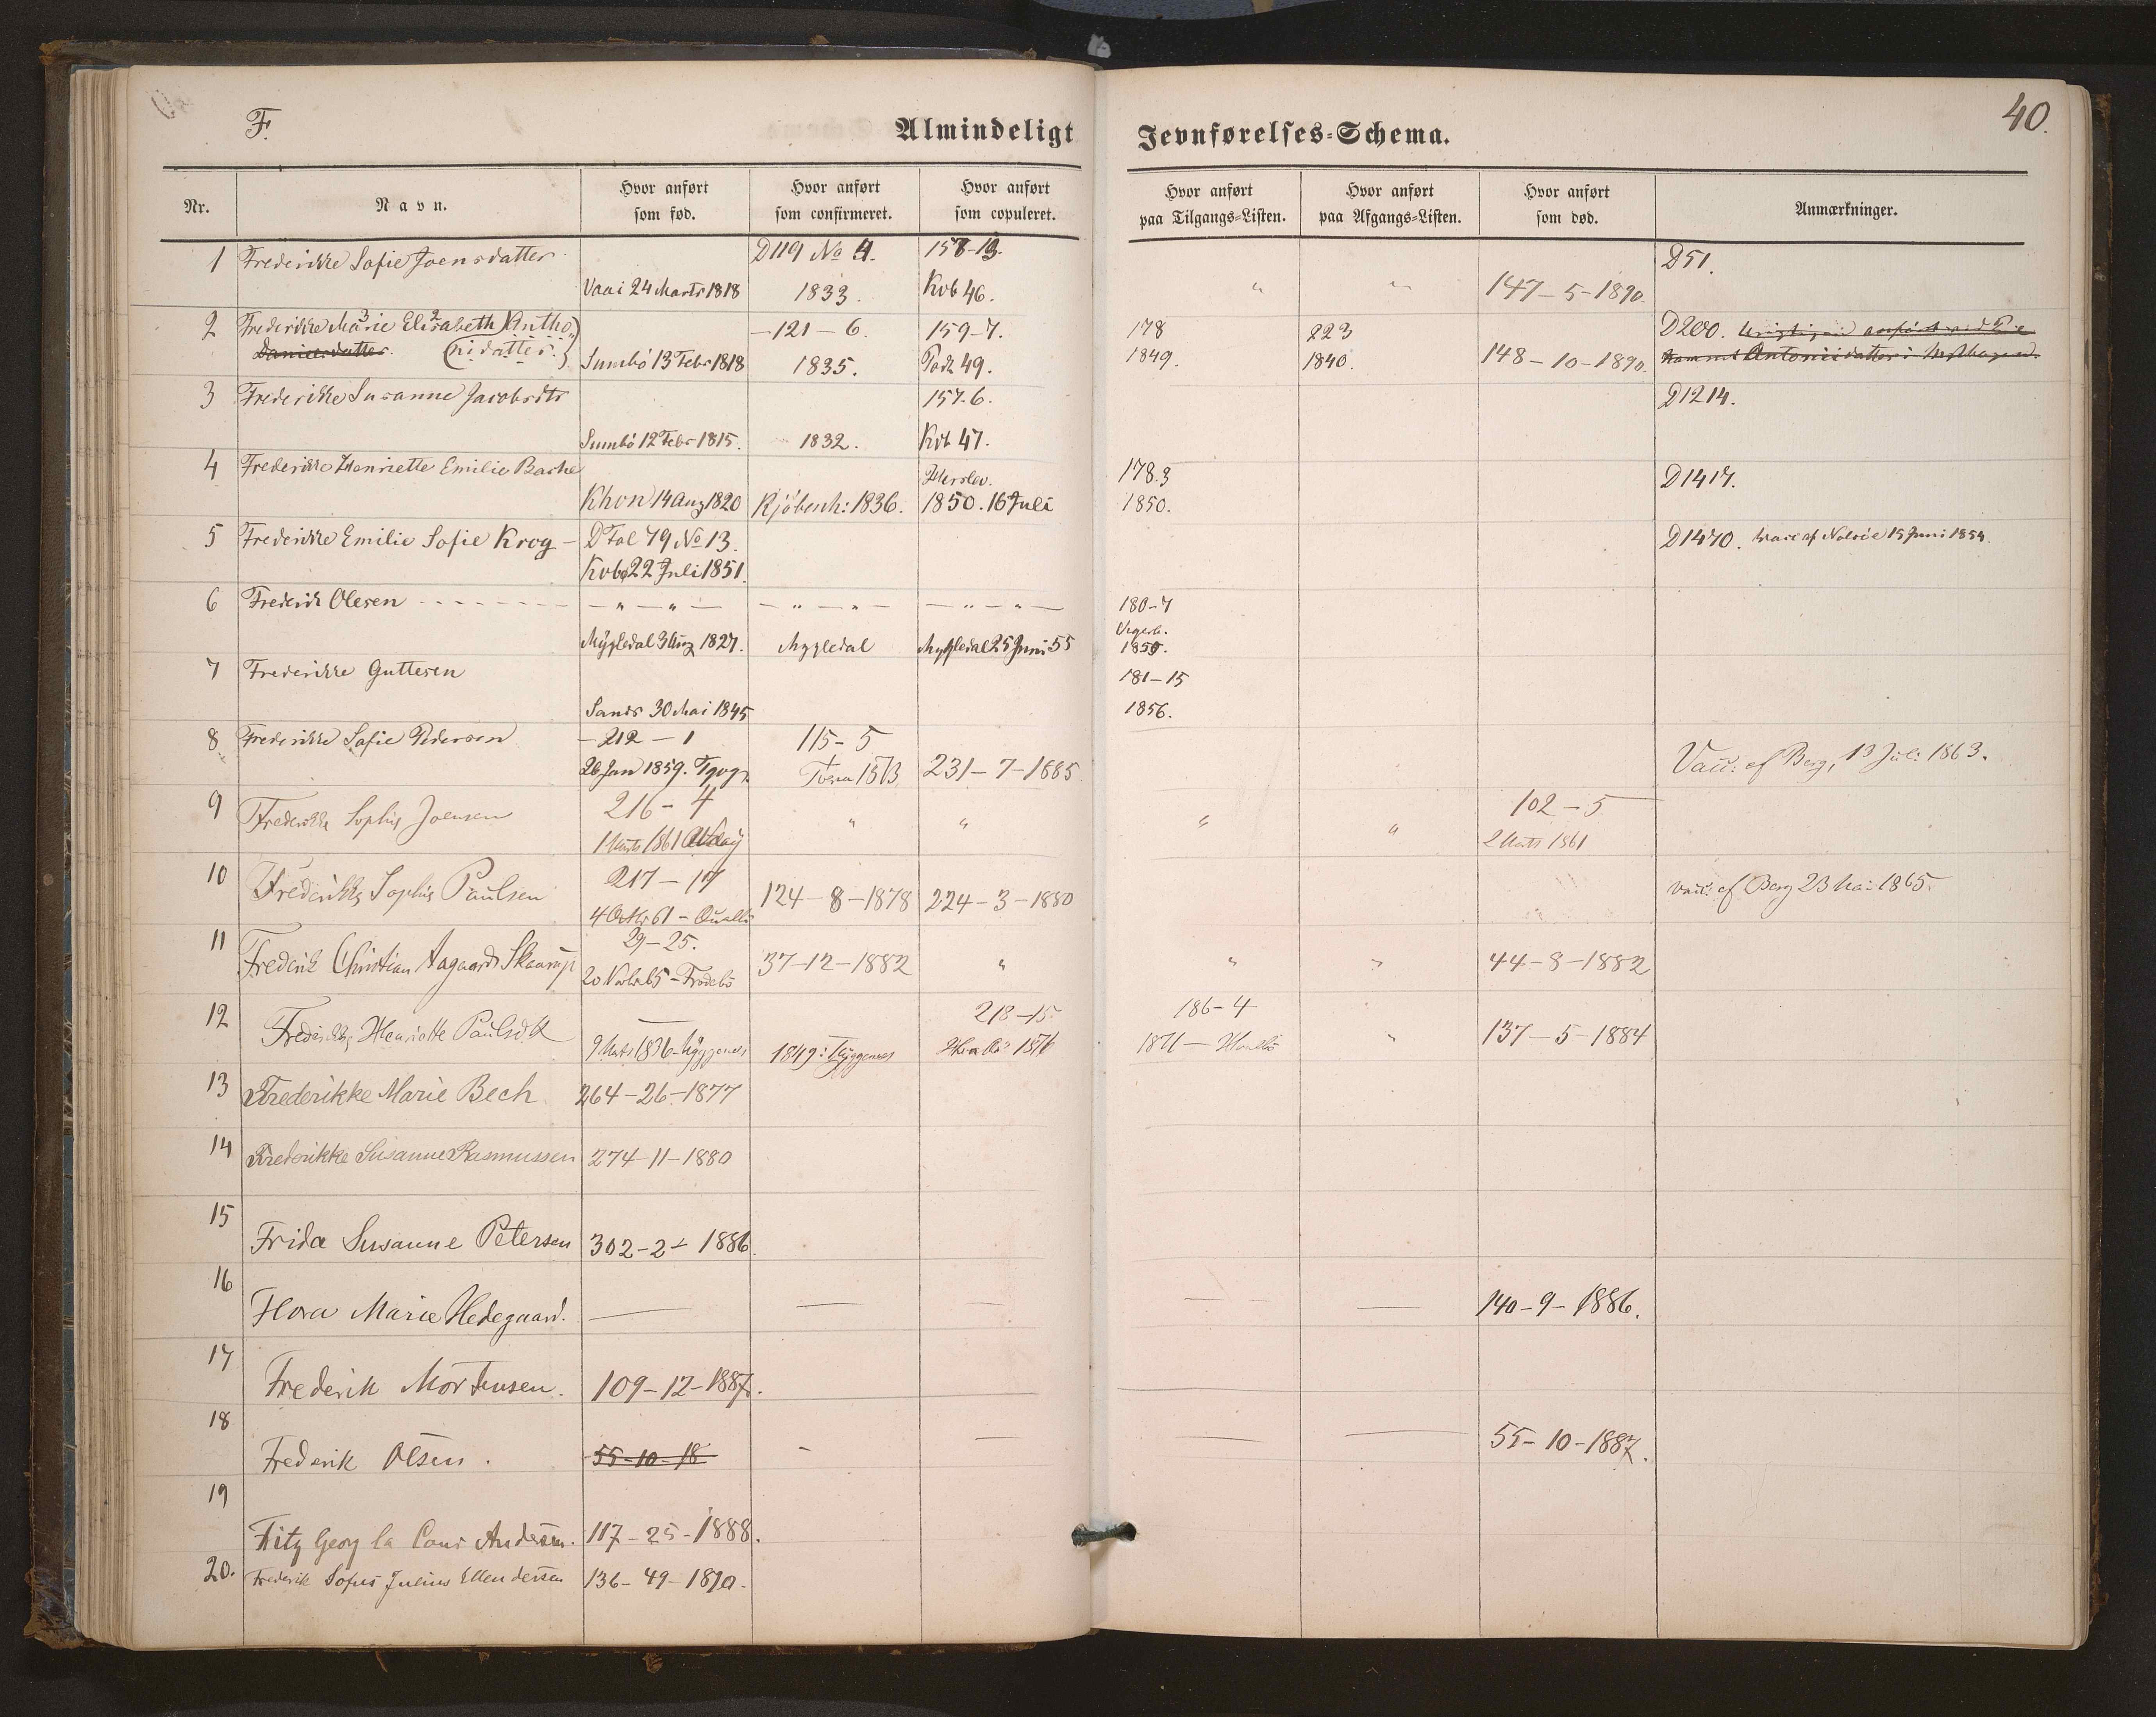 F.
40.
Almindeligt Jevnførelses-Schema.
Nr.
Navn.
Hvor anført som fød.
Hvor anført som confirmeret.
Hvor anført som copuleret.
Hvor anført paa Tilgangs-Listen.
Hvor anført paa Afgangs-Listen.
Hvor anført som død.
Anmærkninger.
1 Frederikke Sofie Joensdatter D119 No 4. 157-13. D51.
Vaai 24 Marts 1818 1833. Kvb 46. " " 147-5-1890.
2 Frederikke Marie 3 Elisabeth 2 (Antho- -121-6. 159-7. 178 223 D200.
Danielsdatter. nidatter.) Sumbö 13 Febr 1818 1835. 49. 1849. 1840. 148-10-1890.
3 Frederikke Susanne Jacobsdtr 157-6. D1214.
Sumbö 12 Febr 1815. 1832. Kvb 47.
4 Frederikke Henriette Emilie Bache Herslev. 178.3 D1417.
Khvn 14 Aug 1820 Kjöbenh: 1836. 1850. 16 Juli 1850.
5 Frederikke Emilie Sofie Krog - D Fol 79 No 13. D1470. vacc af Nolsöe 15 Juni 1854.
Kvbö 22 Juli 1851.
6 Frederik Olesen - " - " - - " - " - - " - " - 180-7
Mygledal 3 Aug 1827. Mygledal Mygledal 25 Juni 55 1855.
7 Frederikke Guttesen 181-15
Sands 30 Mai 1845 1856.
8 Frederikke Sofie Pedersen -212-1 115-5
26 Jan 1859. 231-7-1885 Vacc: af Berg, 13 Juli 1863.
9 Frederikke Sophie Joensen 216-4 " " " " 102-5
1 Marts 1861 2 Marts 1861
10 Frederikke Sophie Paulsen 217-17 124-8-1878 224-3-1880 vacc: af Berg 23 Mai 1865.
4 Octbr 61 - Qualbö
11 Frederik Christian Aagaard Skaarup 29-25. 37-12-1882 " " " 44-8-1882
20 Novbr 65 - Frodebö
12 Frederikke Henriette Paulsdtr 218-15 186-4 137-5-1884
9 Marts 1836 1849: 1876 1871 - Hvalbö "
13 Frederikke Marie Bech 264-26-1877
14 Frederikke Susanne Rasmussen 274-11-1880
15 Frida Susanne Petersen 302-2- 1886.
16 Flora Marie Hedegaard. — — — — — 140-9-1886.
17 Frederik Mortensen. 109-12-1887.
18 Frederik Olsen. 55-10-18 - — — — 55-10-1887.
19 Fitz Georg la Cour Andersen. 117-25-1888.
20. Frederik Sofus Julius Ellendersen 136-49-1890.